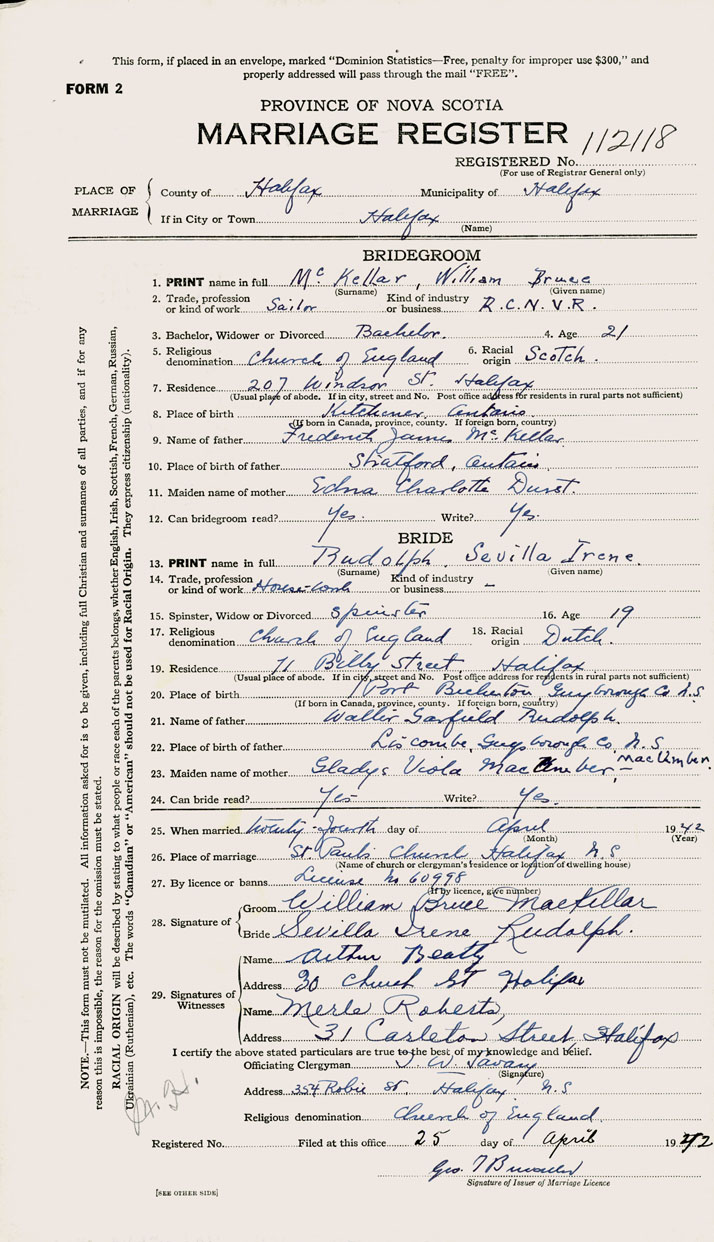 This form, if placed in an envelope, marked "Dominion Statistics—Free, penalty for improper use $300," and
properly addressed will pass through the mail "FREE".
FORM 2
PROVINCE OF NOVA SCOTIA
MARRIAGE REGISTER 112118
REGISTERED No.
(For use of Registrar General only)
PLACE OF MARRIAGE
County of Halifax Municipality of Halifax
If in City or Town Halifax
(Name)
BRIDEGROOM
1. PRINT name in full McKellar, William Bruce
(Surname) (Given name)
2. Trade, profession or kind of work Sailor Kind of industry or business R.C.N.V.R.
3. Bachelor, Widower or Divorced Bachelor. 4. Age 21
5. Religious denomination Church of England 6. Racial origin Scotch.
7. Residence 207 Windsor St. Halifax
(Usual place of abode. If in city, street and No. Post office address for residents in rural parts not sufficient)
8. Place of birth Kitchener, Ontario
(If born in Canada, province, county. If foreign born, country)
9. Name of father Frederick James McKellar
10. Place of birth of father Stratford, Ontario
11. Maiden name of mother Edna Charlotte Durst.
12. Can bridegroom read? Yes. Write? Yes.
BRIDE
13. PRINT name in full Rudolph. Sevilla Irene.
(Surname) (Given name)
14. Trade, profession or kind of work House-work Kind of industry or business –
15. Spinster, Widow or Divorced Spinster 16. Age 19
17. Religious denomination Church of England 18. Racial origin Dutch.
19. Residence 71 Bilby Street Halifax
(Usual place of abode. If in city, street and No. Post office address for residents in rural parts not sufficient)
20. Place of birth Port Bickerton, Guysborough Co N.S
(If born in Canada, province, county. If foreign born, country)
21. Name of father Walter Garfield Rudolph.
22. Place of birth of father Liscombe, Guysborough Co. N.S
23. Maiden name of mother Gladys Viola MacUmber,– MacUmber.
24. Can bride read? Yes Write? Yes.
25. When married twenty-fourth day of April 1942
(Month) (Year)
26. Place of marriage St. Paul's Church Halifax N.S.
(Name of church or clergyman's residence or location of dwelling house)
27. By licence or banns License No 60998
(If by licence, give number)
28. Signature of
Groom William Bruce MacKellar
Bride Sevilla Irene Rudolph.
29. Signatures of Witnesses
Name Arthur Beatty
Address 30 Church St Halifax
Name Merle Roberts,
Address 31 Carleton Street, Halifax
I certify the above stated particulars are true to the best of my knowledge and belief.
Officiating Clergyman T. W. Savary
(Signature)
Address 354 Robie St, Halifax, N.S
Religious denomination Church of England.
Registered No. Filed at this office 25 day of April 1942
Geo.
Signature of Issuer of Marriage Licence
[SEE OTHER SIDE]
NOTE.—This form must not be mutilated. All information asked for is to be given, including full Christian and surnames of all parties, and if for any
reason this is impossible, the reason for the omission must be stated.
RACIAL ORIGIN will be described by stating to what people or race each of the parents belongs, whether English, Irish, Scottish, French, German, Russian,
Ukrainian (Ruthenian), etc. The words "Canadian" or "American" should not be used for Racial Origin. They express citizenship (nationality).